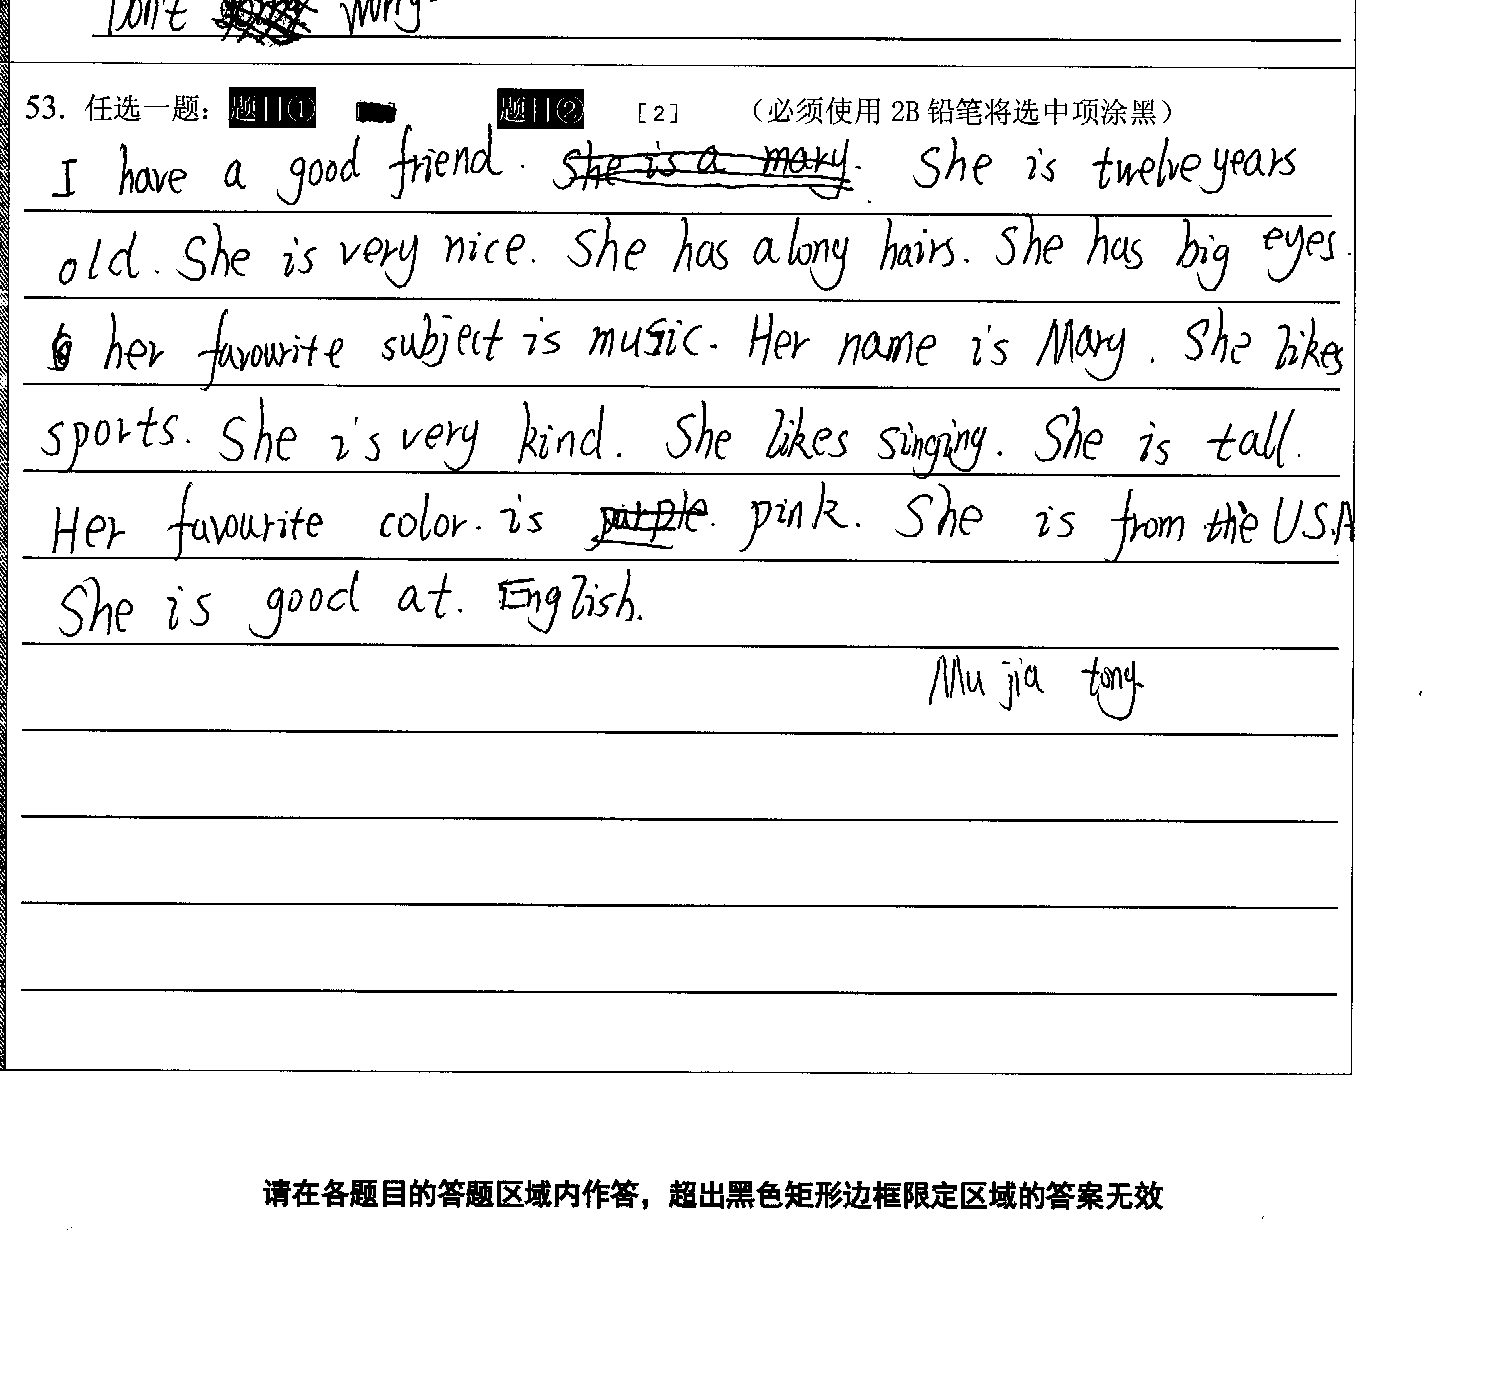 Don't worry.
53. 任选一题： 题目① 题目② [2] （必须使用 2B 铅笔将选中项涂黑）
I have a good friend. She is a mary. She is twelve years
old. She is very nice. She has a long hairs. She has big eyes.
her favourite subject is music. Her name is Mary. She likes
sports. She is very kind. She likes singing. She is tall.
Her favourite color. is purple. pink. She is from the U.S.A
She is good at. English.
Mu jia tong
请在各题目的答题区域内作答，超出黑色矩形边框限定区域的答案无效